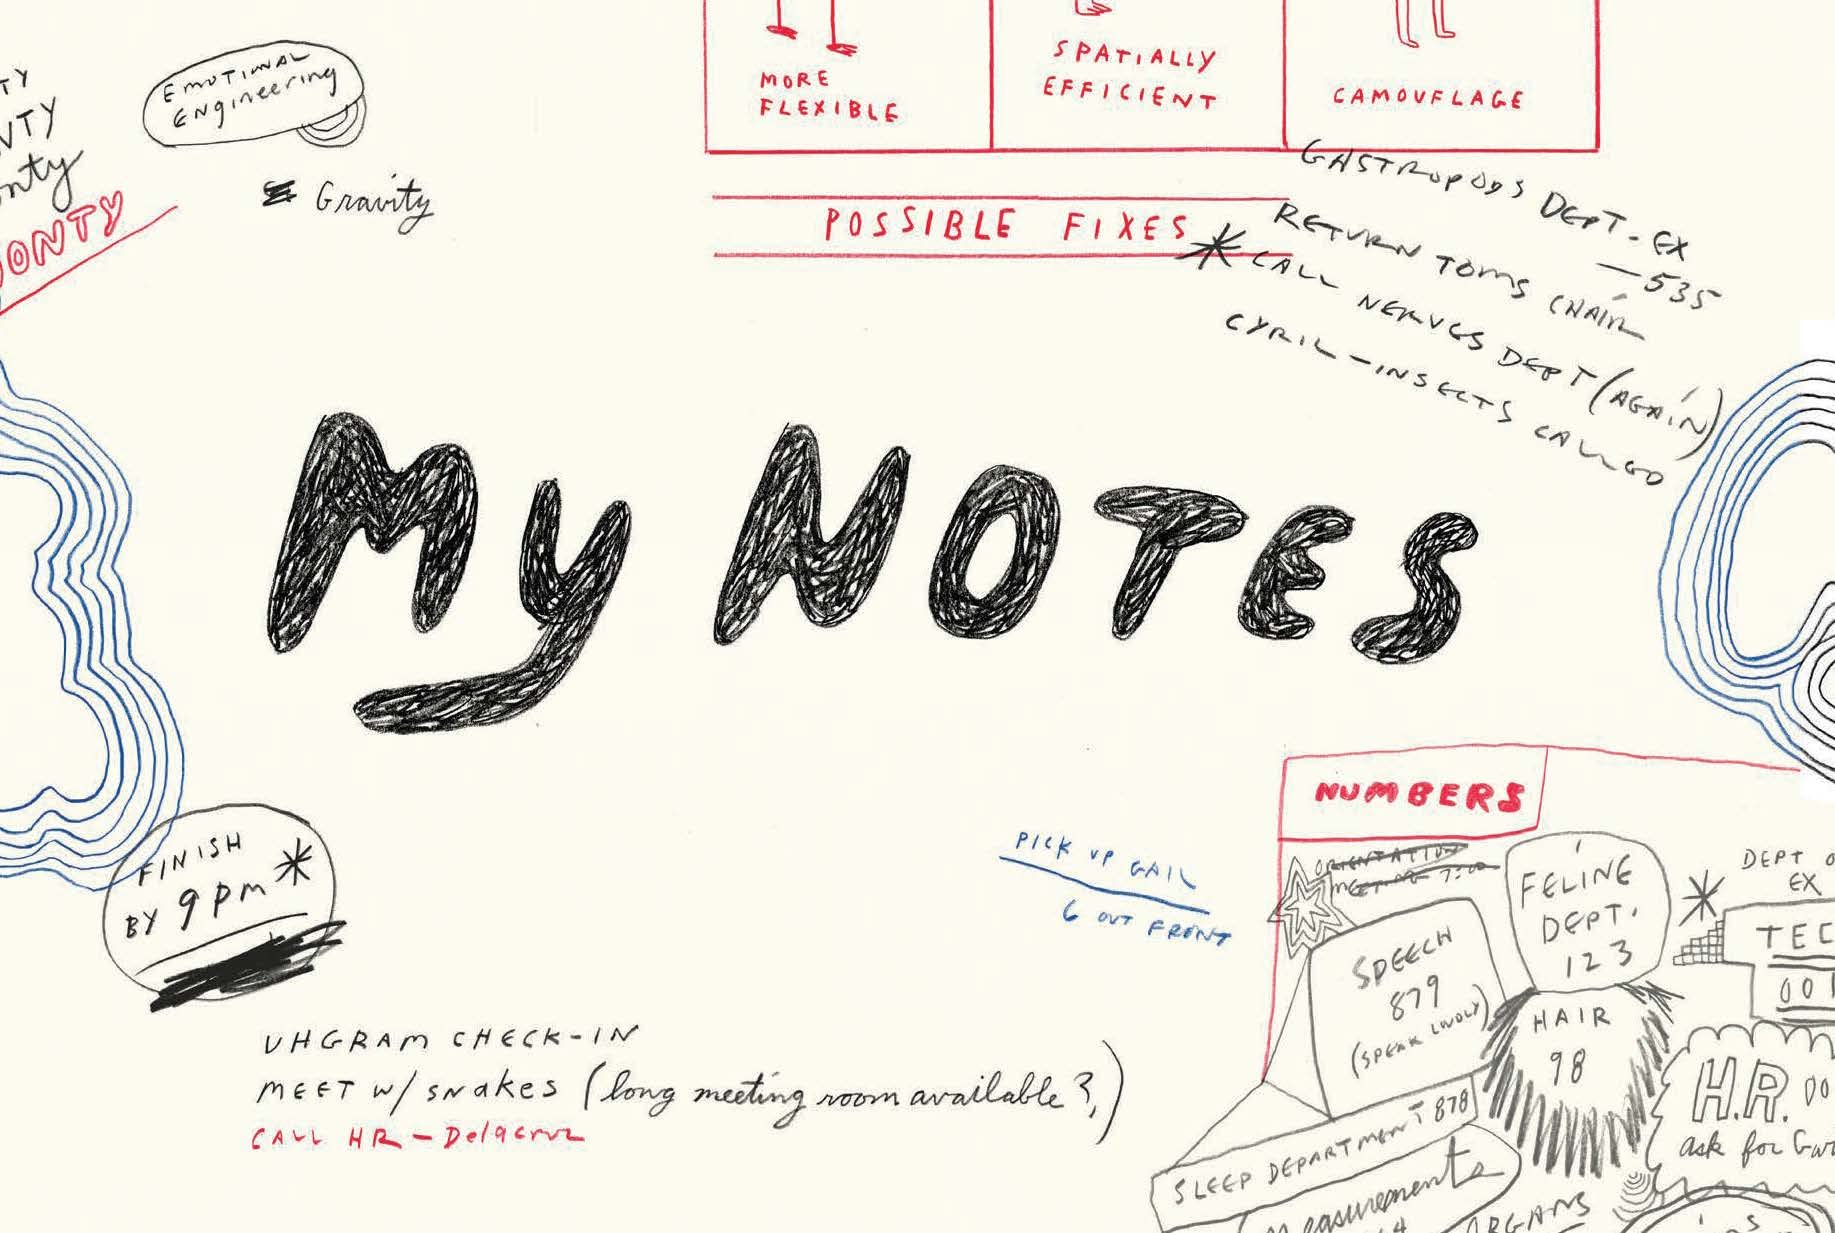 EMOTIONAL
Engineering
Gravity
MORE
FLEXIBLE
SPATIALLY
EFFICIENT
CAMOUFLAGE
POSSIBLE FIXES
GASTROPODS DEPT. EX
—535
RETURN TOMS CHAIR
* CALL NERVES DEPT (AGAIN)
CYRIL-INSECTS CALLED
My NOTES
FINISH
BY 9pm *
PICK UP GAIL
6 OUT FRONT
UHGRAM CHECK-IN
MEET W/ SNAKES (long meeting room available?)
CALL HR - Delacruz
NUMBERS
ORIENTATION
MEETING 7:00
SPEECH
879
(SPEAK LOUDLY)
FELINE
DEPT.
123
HAIR
98
DEPT
EX
TEC
001
H.R.
ask for
SLEEP DEPARTMENT 878
measurements
ORGANS